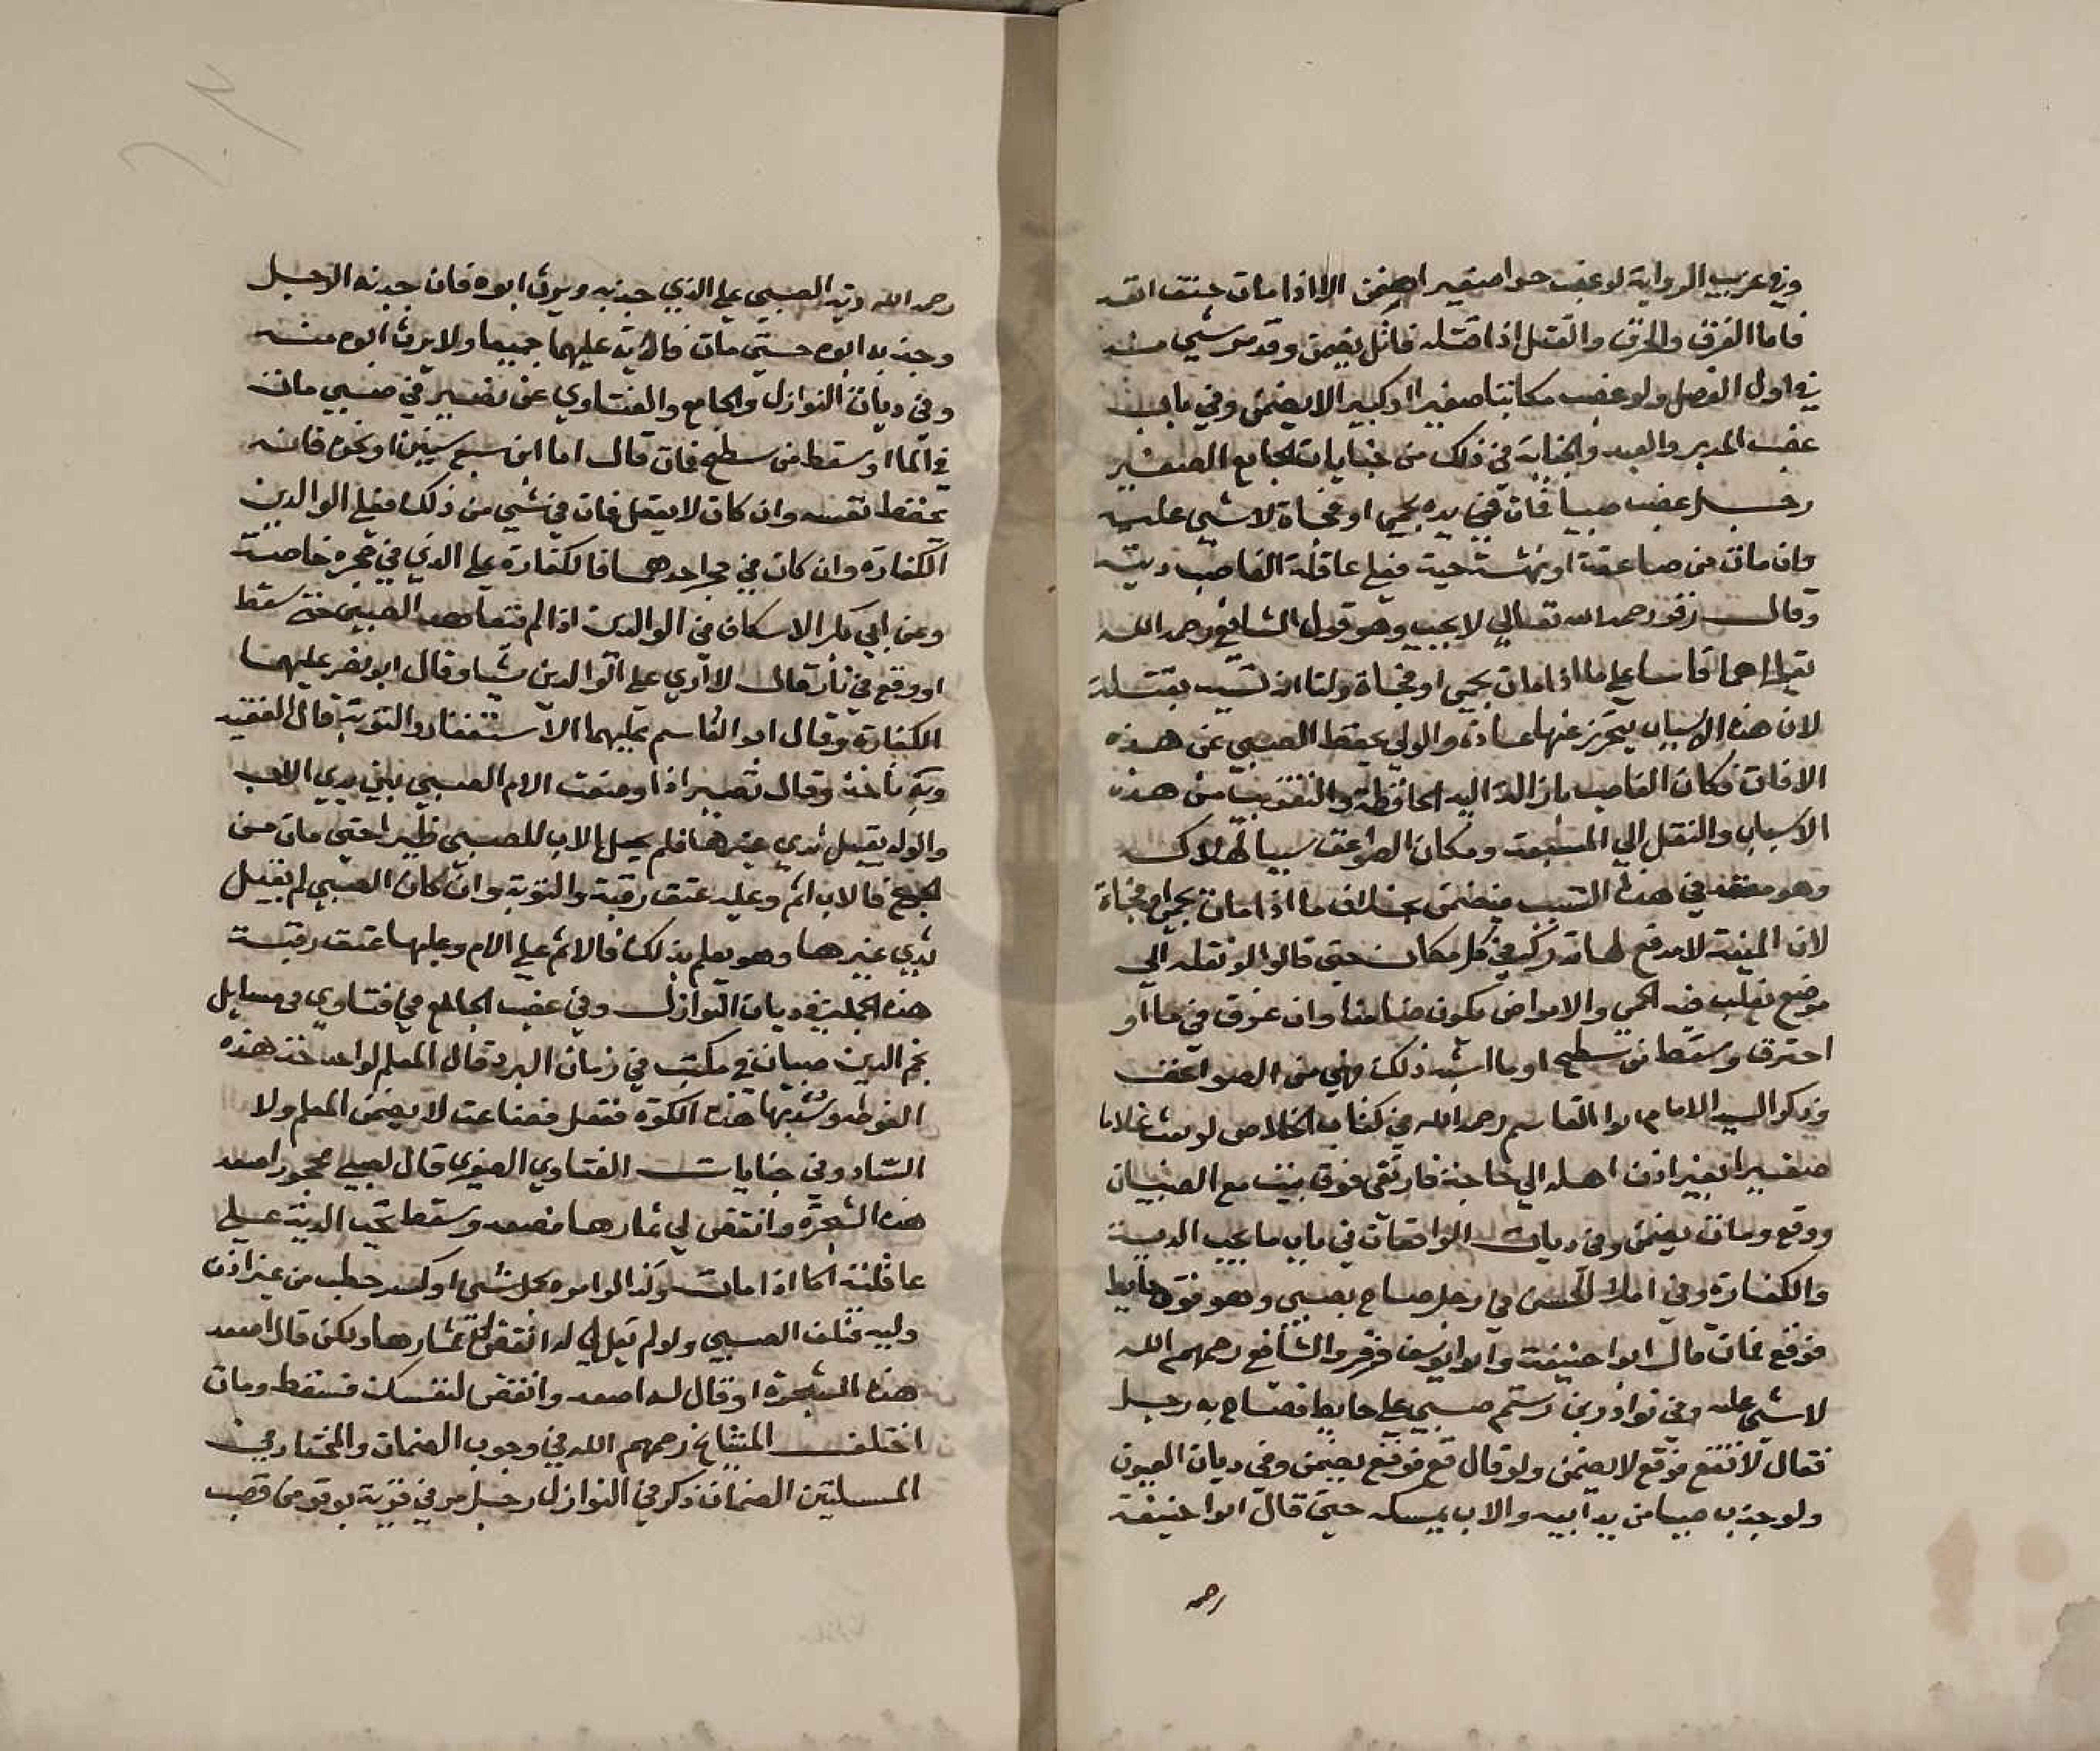 وفي غريب الرواية لو غصب حرا صغيرا يضمن الا اذا مات حتف انفه
فاما الغرق والحرق والقتل اذا قتله قاتل يضمن وقد مر شي منه
في اول الفصل ولو غصب مكاتبا صغيرا او كبيرا لا يضمن وفي باب
غصب المدبر والعبد والجناية في ذلك من جنايات الجامع الصغير
رجل غصب صبيا فمات في يده بحمي او فجاة لا شي عليه
وان مات من صاعقة او نهشته حية فعلي عاقلة الغاصب ديته
وقال زفر رحمه الله تعالي لا يجب وهو قول الشافعي رحمه الله
تعالي قاسا علي ما اذا مات بحمي او فجاة ولنا انه تسبب بقتله
لان هذه الاسباب يتحرز عنها عادة والولي يحفظ الصبي عن هذه
الافات فكان الغاصب بازالة اليد الحافظة والتقريب من هذه
الاسباب والنقل الي المسبعة ومكان الصواعق سببا لهلاكه
وهو متعد في هذا السبب فيضمن بخلاف ما اذا مات بحمي او فجاة
لان المنية لا مدفع لها تدركه في كل مكان حتي قالوا لو نقله الي
موضع تغلب فيه الحمي والامراض يكون ضامنا وان غرق في ماا او
احترق او سقط من سطح او ما اشبه ذلك فهي من الصواعق
وذكر السيد الامام ابوا القاسم رحمه الله في كتاب الخلاص لو بعث غلاما
صغيرا بغير اذن اهله الي حاجة فارتقي فوق بيت مع الصبيان
ووقع ومات يضمن وفي ديات الواقعات في باب ما يجب الدية
والكفارة وفي املاء الحسن في رجل صاح بصبي وهو فوق حايط
فوقع فمات قال ابوا حنيفة وابوا يوسف وزفر والشافعي رحمهم الله
لا شي عليه وفي نوادر بن رستم صبي علي حايط فصاح به رجل
فقال لا تقع فوقع لا يضمن ولو قال قع فوقع يضمن وفي ديات العيون
ولو جذب صبيا من يد ابيه والاب يمسكه حتي قال ابوا حنيفة
رحمه
رحمه الله دية الصبي علي الذي جذبه ويرث ابوه فان جذبه الرجل
وجذبه ابوه حتي مات فالدية عليهما جميعا ولا يرث ابوه منه
وفي ديات النوازل والجامع والفتاوي عن نصير في صبي مات
في الماا او سقط من سطح فمات قال اما ابن سبع سنين او نحوه فانه
يحفظ نفسه وان كان لا يعقل فمات في شي من ذلك فعلي الوالدين
الكفارة وان كان في حجر احدهما فالكفارة علي الذي في حجره خاصة
وعن ابي بكر الاسكاف في الوالدين اذا لم يتعاهدا الصبي حتي سقط
او وقع في نار قال لا اري علي الوالدين شيا وقال ابو نصر عليهما
الكفارة وقال ابو القاسم عليهما الاستغفار والتوبة قال الفقيه
وبه ناخذ وقال نصير اذا وضعت الام الصبي بين يدي الاب
والولد يقبل ثدي غيرها فلم يحمل الاب للصبي ظيرا حتي مات من
الجوع فالاب اثم وعليه عتق رقبة والتوبة وان كان الصبي لم يقبل
ثدي غيرها وهو يعلم بذلك فالاثم علي الام وعليها عتق رقبة
هذه الجملة في ديات النوازل وفي غصب الجامع في فتاوي في مسايل
نجم الدين صبيان في مكتب في زمان البرد قال المعلم لواحد خذ هذه
الفوطة وشد بها هذه الكوة ففعل فضاعت لا يضمن المعلم ولا
الشاد وفي جنايات الفتاوي الصغري قال لصبي محجور اصعد
هذه الشجرة وانتقض لي ثمارها فصعد وسقط تجب الدية علي
عاقلته كما اذا مات وكذا لو امره بحمل شي او كسر حطب من غير اذن
وليه فتلف الصبي ولو لم يقل له انتقض ثمارها ولكن قال اصعد
هذه الشجرة او قال له اصعد وانتقض لنفسك فسقط ومات
اختلف المشايخ رحمهم الله في وجوب الضمان والمختار في
المسلتين الضمان ذكر في النوازل رجل مر في قرية بوقر من قصب